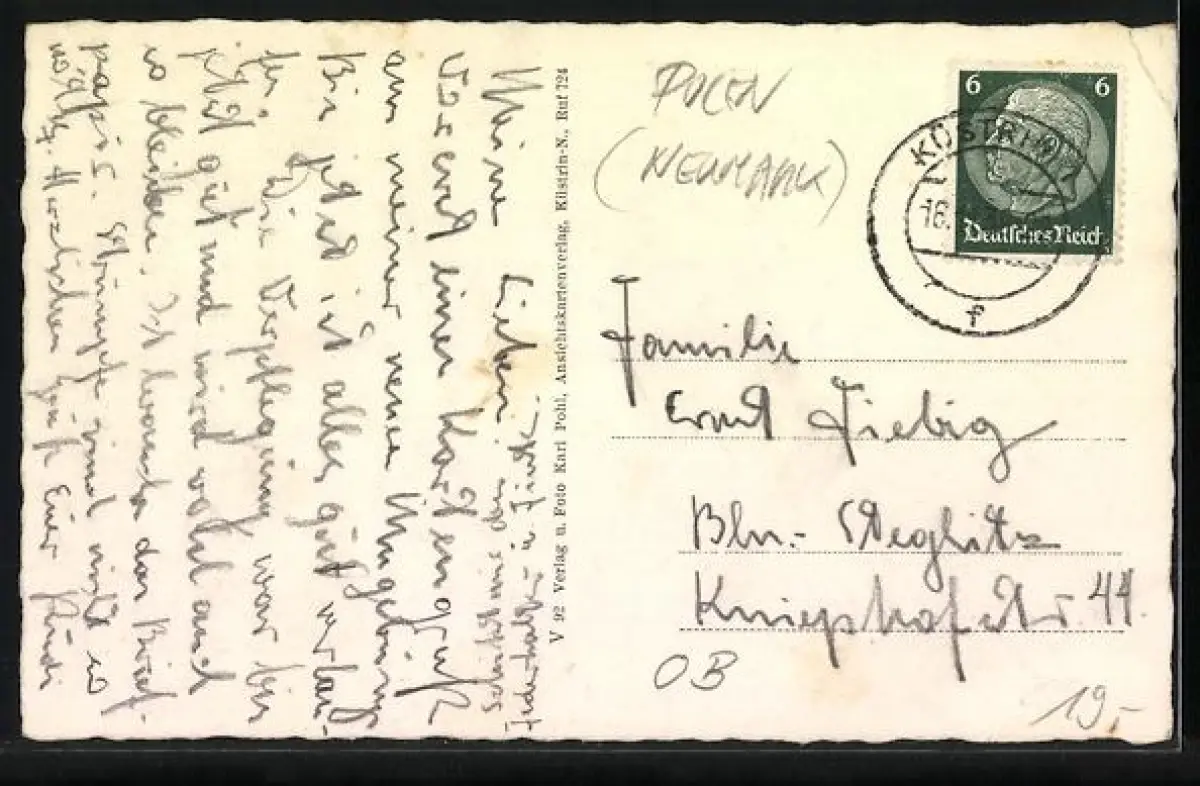 Meine Lieben!
Vorerst einen Kartengruß
aus meiner neuen Umgebung
Bin jetzt ist alles gut verlau-
fen. Die Verpflegung war bis
jetzt gut und wird wohl auch
so bleiben. Ich brauche das Brief-
papier. Strümpfe sind nicht so
wichtig. Herzlichen Gruß Euer Rudi
V 92 Verlag u. Foto Karl Pohl, Ansichtskartenverlag, Küstrin-N., Ruf 724
POLEN
(NEUMARK)
6 6
Deutsches Reich
KÜSTRIN
16.
f
Familie
Ernst Fiebig
Bln.- Steglitz
Kniephofstr. 44
OB
19,-